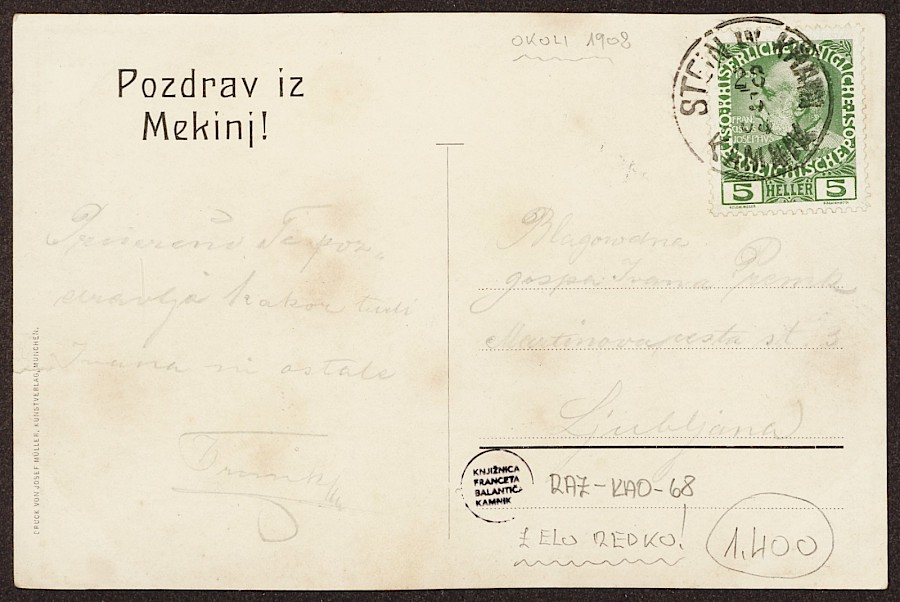 OKOLI 1908
Pozdrav iz
Mekinj!
STEIN IN KRAIN
28
KAMNIK
KAISERLICHE KÖNIGLICHE ÖSTERREICHISCHE POST
5 HELLER 5
Prisrčno Te poz-
dravlja kakor tudi
Ivana in ostale
Blagorodna
gospa Ivana
Martinova cesta št. 3
Ljubljana
DRUCK VON JOSEF MÜLLER, KUNSTVERLAG, MÜNCHEN.
KNJIŽNICA
FRANCETA
BALANTIČA
KAMNIK
RAZ-KAO-68
ZELO REDKO!
1.400